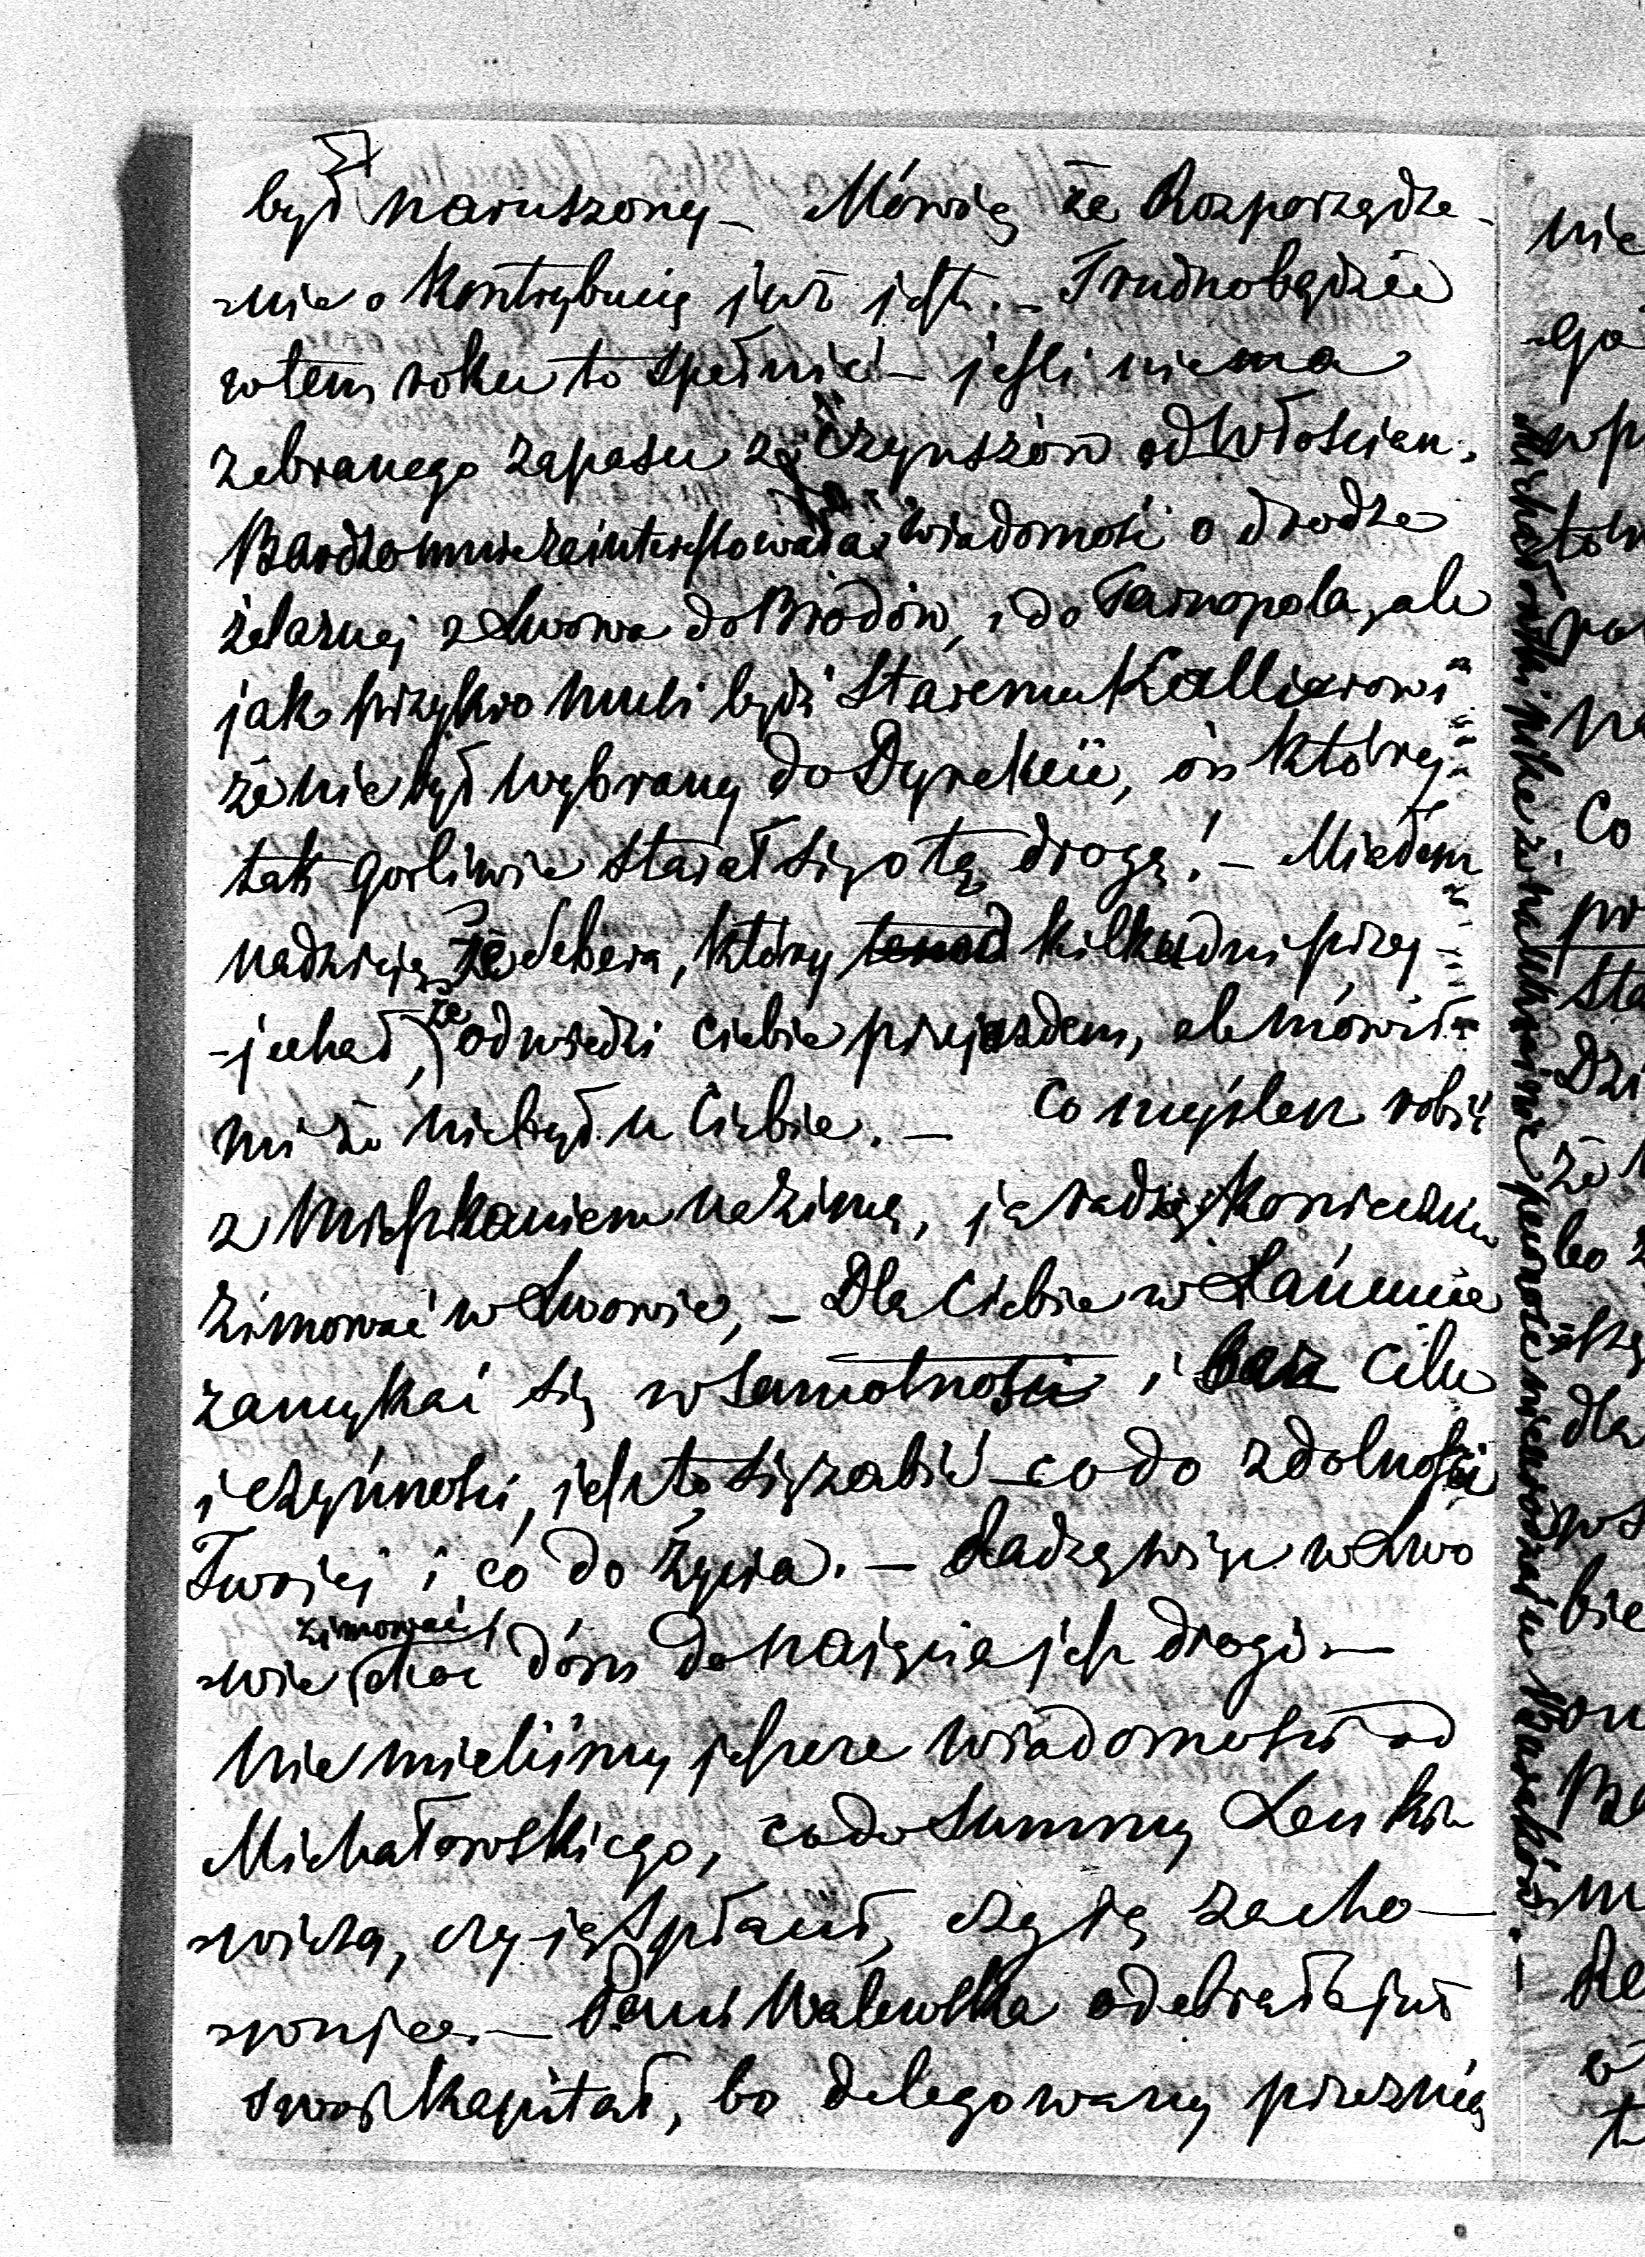 był naruszony – Mówią że Rozporządze-
nie o Kontrybucię już jest. – Trudno będzie
w tem roku to spełnić – jeśli niema
zebranego zapasu z Czynszów od Włościan.
Bardzo mnie zainteressowała wiadomość o drodze
żelaznej z Lwowa do Brodów, i do Tarnopola, ale
jak przykro musi bydź Staremu Kallierowi
że nie był wybrany do Dyrekcii, on który
tak gorliwie starał się o tą drogę! – Miałem
nadzieję Lebera, który kilka dni przy-
-jechał, że odwiedzi Ciebie przejazdem, ale mówił
mi że nie był u Ciebie. – Co myślesz robić
z Mieszkaniem na Zimę, ja radzę koniecznie
zimować w Lwowie, – Dla Ciebie w Łańcucie
zamykać się w samotności i bez celu
i czynności, jest to się zabić – co do zdolności
Twojej i co do życia. – Radzę więc w Lwo
wie zimować choć dóm do najęcia jest drogi –
Nie mieliśmy jeszcze wiadomości od
Michałowskiego, co do Summy Lenkie
wicza, czy ją spłacił, czy ją zacho-
wuje. – Pani Walewska odebrała już
swój Kapitał, bo delegowany przez nią
Michałowski pisze że na Ukrainie pewność nie
nie
ego
wp
tow
ra
na
Co
pr
sta
Dzi
że
bo
dla
ws
bie
on
m